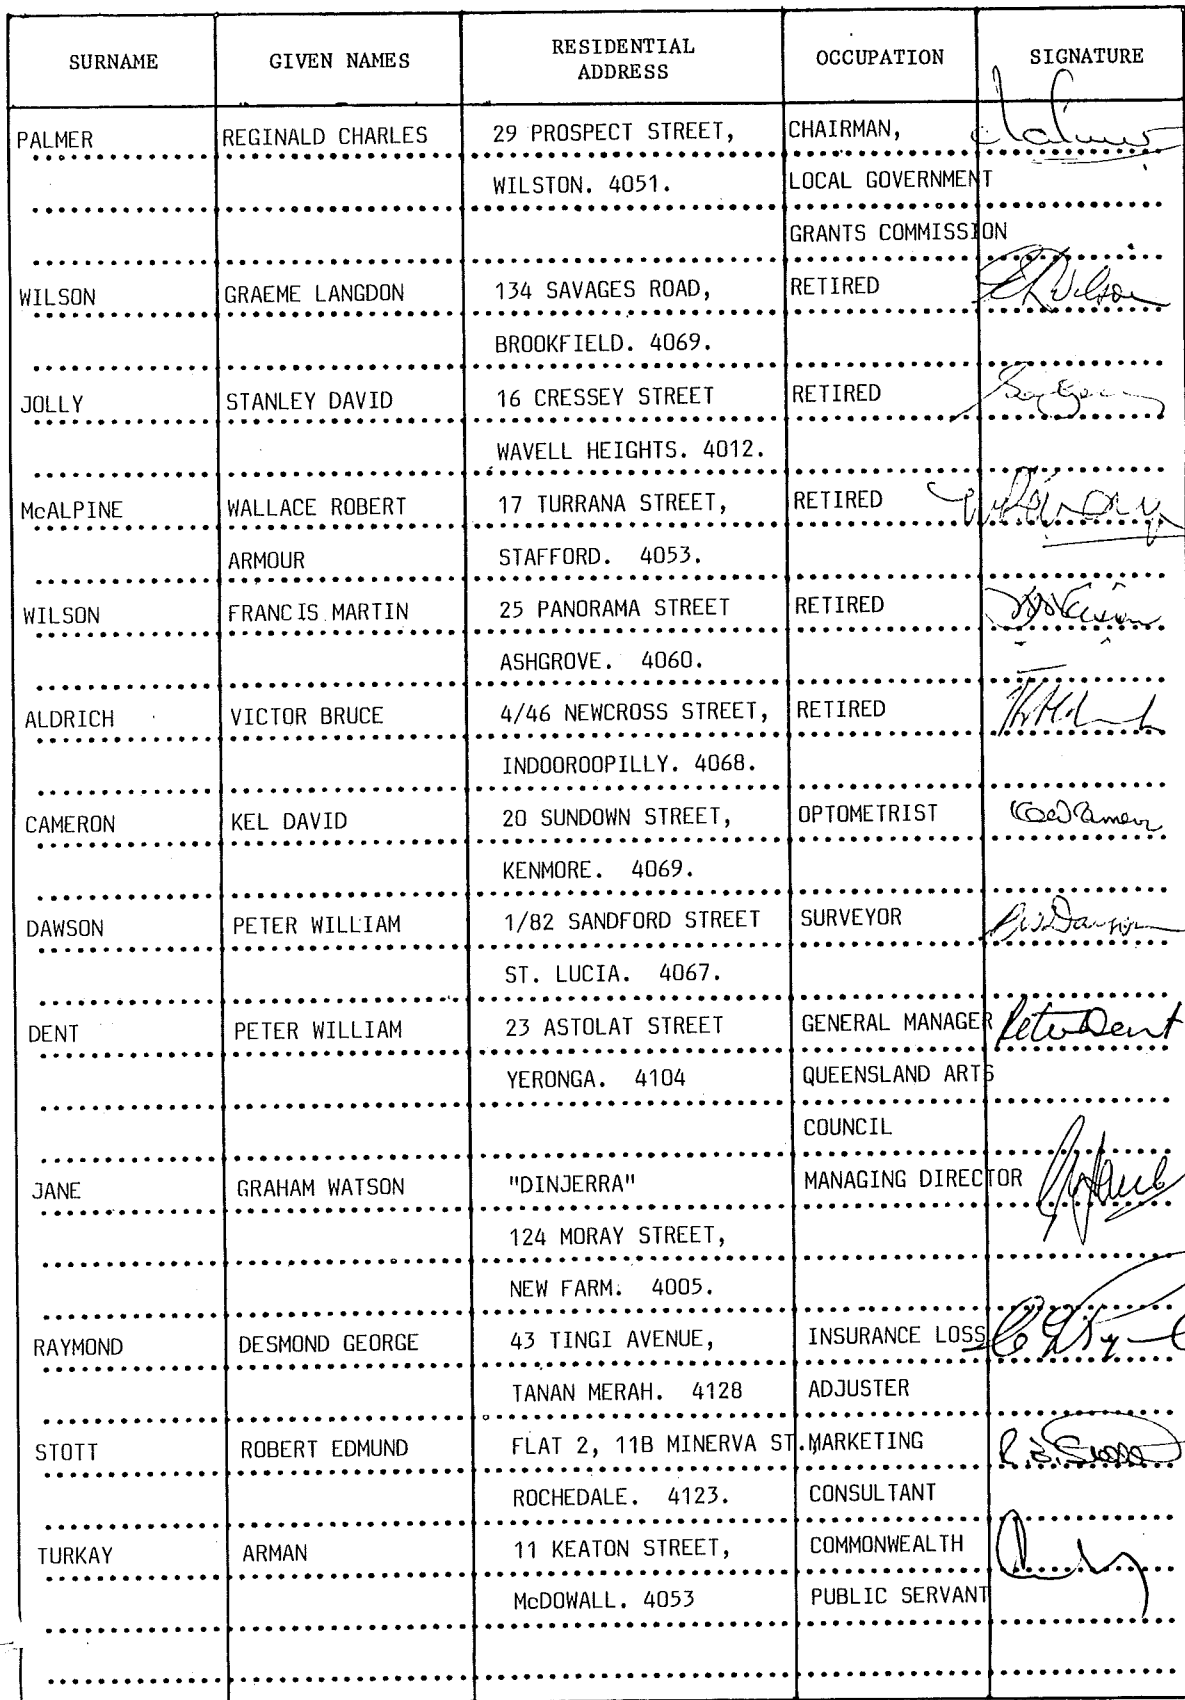 SURNAME GIVEN NAMES RESIDENTIAL ADDRESS OCCUPATION SIGNATURE
PALMER REGINALD CHARLES 29 PROSPECT STREET, CHAIRMAN,
WILSTON. 4051. LOCAL GOVERNMENT
GRANTS COMMISSION
WILSON GRAEME LANGDON 134 SAVAGES ROAD, RETIRED GLWilson
BROOKFIELD. 4069.
JOLLY STANLEY DAVID 16 CRESSEY STREET RETIRED
WAVELL HEIGHTS. 4012.
McALPINE WALLACE ROBERT 17 TURRANA STREET, RETIRED
ARMOUR STAFFORD. 4053.
WILSON FRANCIS MARTIN 25 PANORAMA STREET RETIRED
ASHGROVE. 4060.
ALDRICH VICTOR BRUCE 4/46 NEWCROSS STREET, RETIRED
INDOOROOPILLY. 4068.
CAMERON KEL DAVID 20 SUNDOWN STREET, OPTOMETRIST
KENMORE. 4069.
DAWSON PETER WILLIAM 1/82 SANDFORD STREET SURVEYOR PWDawson
ST. LUCIA. 4067.
DENT PETER WILLIAM 23 ASTOLAT STREET GENERAL MANAGER Peter Dent
YERONGA. 4104 QUEENSLAND ARTS
COUNCIL
JANE GRAHAM WATSON "DINJERRA" MANAGING DIRECTOR
124 MORAY STREET,
NEW FARM. 4005.
RAYMOND DESMOND GEORGE 43 TINGI AVENUE, INSURANCE LOSS
TANAN MERAH. 4128 ADJUSTER
STOTT ROBERT EDMUND FLAT 2, 11B MINERVA ST. MARKETING
ROCHEDALE. 4123. CONSULTANT
TURKAY ARMAN 11 KEATON STREET, COMMONWEALTH
McDOWALL. 4053 PUBLIC SERVANT